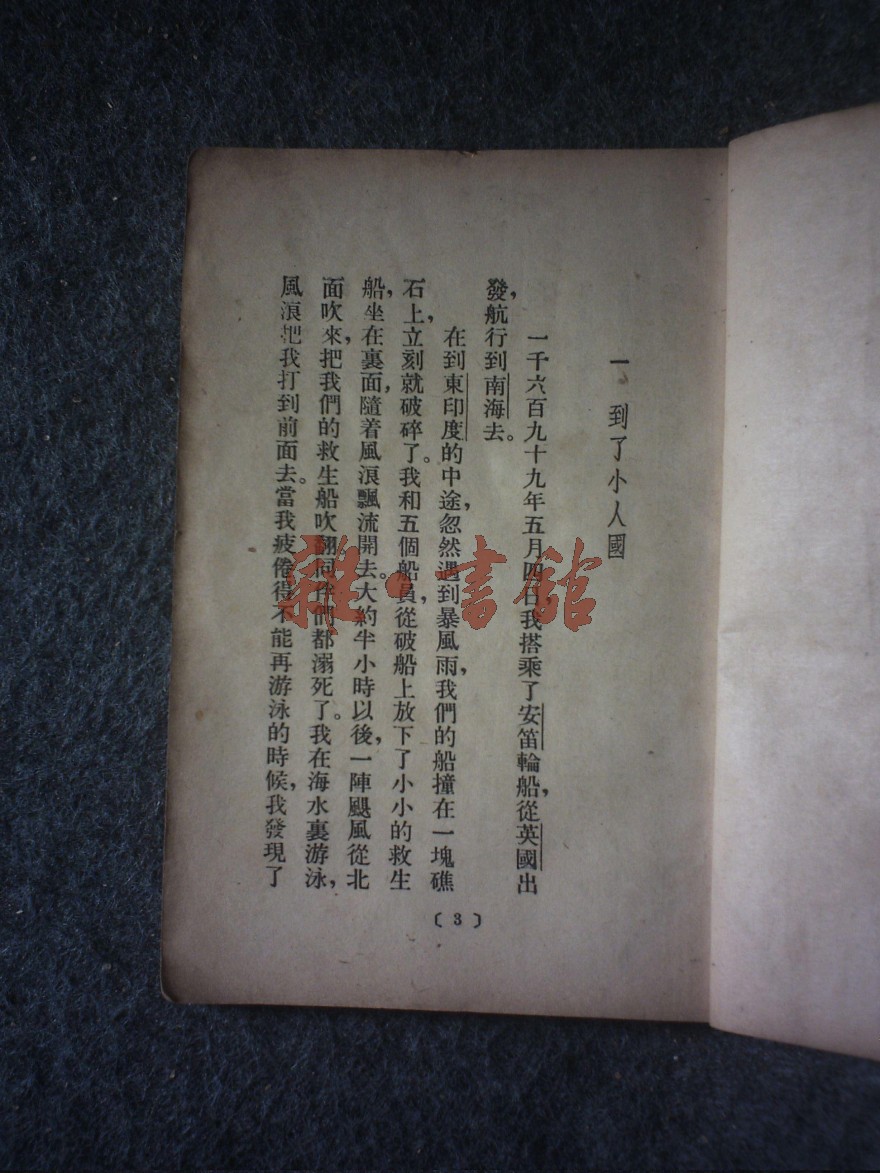 一 到了小人國
一千六百九十九年五月四日我搭乘了安笛輪船,從英國出
發,航行到南海去。
在到東印度的中途,忽然遇到暴風雨,我們的船撞在一塊礁
石上,立刻就破碎了。我和五個船員,從破船上放下了小小的救生
船,坐在裏面,隨着風浪飄流開去。大約半小時以後,一陣颶風從北
面吹來,把我們的救生船吹翻,同伴們都溺死了。我在海水裏游泳,
風浪把我打到前面去。當我疲倦得不能再游泳的時候,我發現了
〔3〕
雜·書館